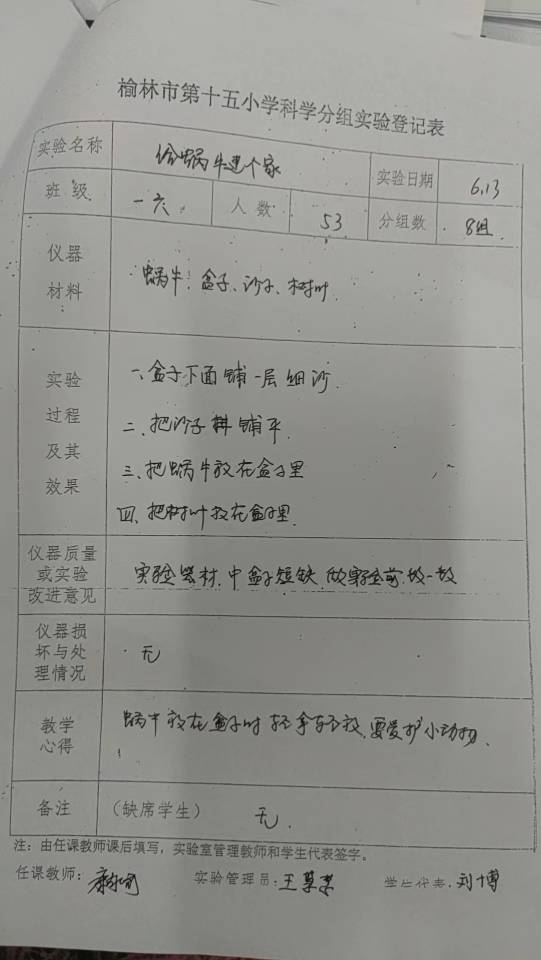 榆林市第十五小学科学分组实验登记表
实验名称 给蜗牛建个家 实验日期 6.13
班级 一六 人数 53 分组数 8组
仪器
材料
蜗牛、盒子、沙子、树叶
实验
过程
及其
效果
一、盒子下面铺一层细沙
二、把沙子铺平
三、把蜗牛放在盒子里
四、把树叶放在盒子里
仪器质量
或实验
改进意见
实验器材中盒子短缺 做实验前 一
仪器损
坏与处
理情况
无
教学
心得
蜗牛放在盒子时轻拿轻放,要爱护小动物.
备注 (缺席学生) 无.
注:由任课教师课后填写,实验室管理教师和学生代表签字。
任课教师: 实验管理员:王 学生代表:刘博